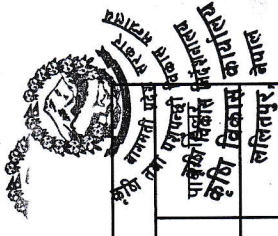 बागमती प्रदेश
सरकार
कृषि तथा पशुपन्छी विकास
मन्त्रालय
निर्देशनालय
कृषि विकास
कार्यालय
ललितपुर,
नेपाल